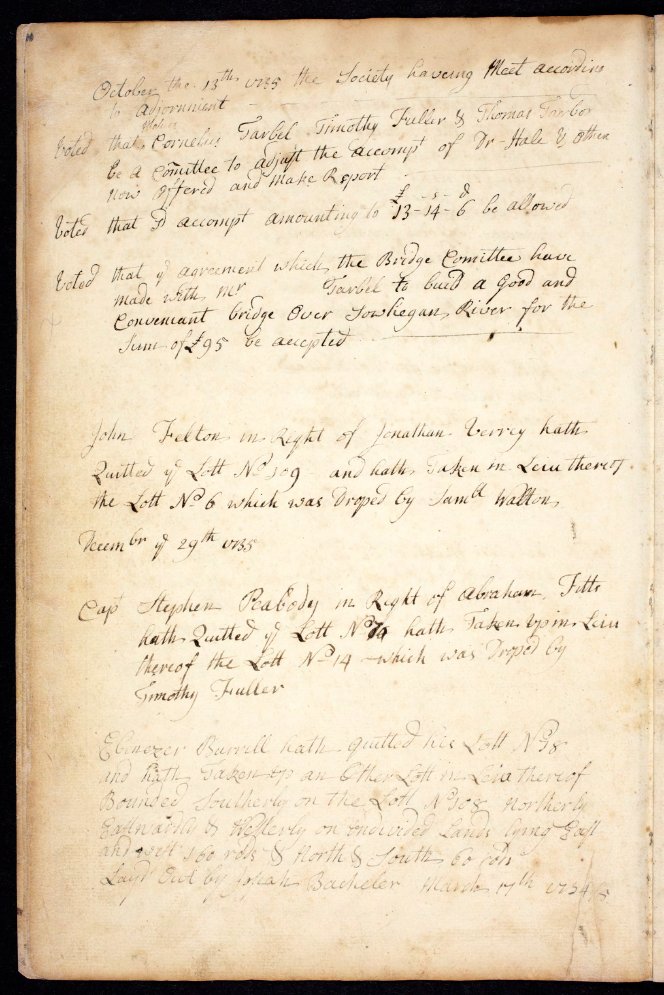 October the 13th 1735 the Society having Meet according
to adjornment
Voted that Cornelius Tarbel Timothy Fuller & Thomas Tarbox
be a Comittee to adjust the accompt of Dr Hale & Other
now offered and Make Report
£ - s - d
Voted that sd accompt amounting to 13-14-6 be allowed
Voted that ye agreement which the Bridge Comittee have
made with Mr Tarbel to build a Good and
Conveniant bridge Over Sowhegan River for the
Sum of £95 be accepted
John Felton in Right of Jonathan Verrey hath
Quitted ye Lott No 109 and hath Taken in Leiu thereof
the Lott No 6 which was Droped by Samll Walton
Decembr ye 29th 1735
Cap Stephen Peabody in Right of Abraham Fitts
hath Quitted ye Lott No hath Taken up in Leiu
thereof the Lott No 14 which was Droped by
Timothy Fuller
Ebenezer Burrell hath quitted his Lott No
and hath Taken up an Other Lott in Leiu thereof
Bounded Southerly on the Lott No 108 Northerly
Eastwardly & Westerly on undivided Lands lying East
and west 160 rods & North & South 60 rods
Layd Out by Joseph Bacheler March 17th 1734/5